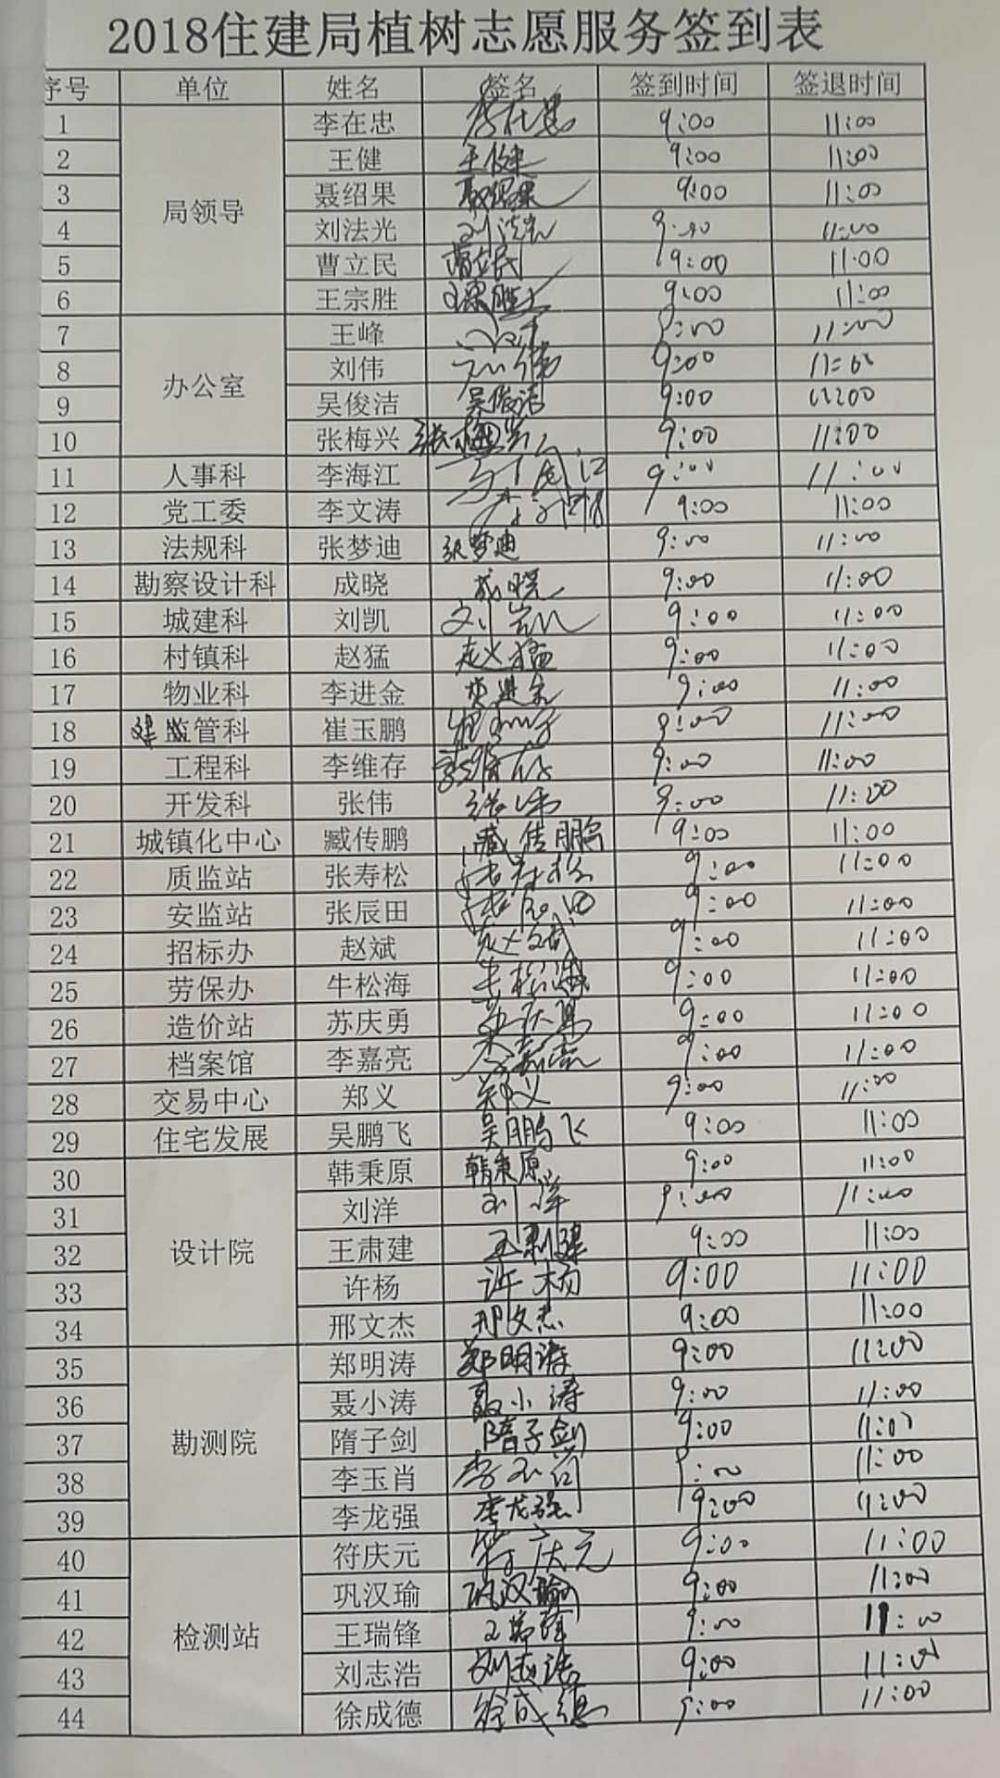 2018住建局植树志愿服务签到表
序号 单位 姓名 签名 签到时间 签退时间
1 局领导 李在忠 李在忠 9:00 11:00
2 王健 王健 9:00 11:00
3 聂绍果 聂绍果 9:00 11:00
4 刘法光 刘法光 9:00 11:00
5 曹立民 曹立民 9:00 11:00
6 王宗胜 王宗胜 9:00 11:00
7 办公室 王峰 9:00 11:00
8 刘伟 刘伟 9:00 11:00
9 吴俊洁 吴俊洁 9:00 11:00
10 张梅兴 张梅兴 9:00 11:00
11 人事科 李海江 李海江 9:00 11:00
12 党工委 李文涛 李文涛 9:00 11:00
13 法规科 张梦迪 张梦迪 9:00 11:00
14 勘察设计科 成晓 成晓 9:00 11:00
15 城建科 刘凯 刘凯 9:00 11:00
16 村镇科 赵猛 赵猛 9:00 11:00
17 物业科 李进金 李进金 9:00 11:00
18 建监管科 崔玉鹏 9:00 11:00
19 工程科 李维存 李维存 9:00 11:00
20 开发科 张伟 张伟 9:00 11:00
21 城镇化中心 臧传鹏 臧传鹏 9:00 11:00
22 质监站 张寿松 张寿松 9:00 11:00
23 安监站 张辰田 张辰田 9:00 11:00
24 招标办 赵斌 赵斌 9:00 11:00
25 劳保办 牛松海 牛松海 9:00 11:00
26 造价站 苏庆勇 苏庆勇 9:00 11:00
27 档案馆 李嘉亮 李嘉亮 9:00 11:00
28 交易中心 郑义 郑义 9:00 11:00
29 住宅发展 吴鹏飞 吴鹏飞 9:00 11:00
30 设计院 韩秉原 韩秉原 9:00 11:00
31 刘洋 刘洋 9:00 11:00
32 王肃建 王肃建 9:00 11:00
33 许杨 许杨 9:00 11:00
34 邢文杰 邢文杰 9:00 11:00
35 勘测院 郑明涛 郑明涛 9:00 11:00
36 聂小涛 聂小涛 9:00 11:00
37 隋子剑 隋子剑 9:00 11:00
38 李玉肖 李玉肖 9:00 11:00
39 李龙强 李龙强 9:00 11:00
40 检测站 符庆元 符庆元 9:00 11:00
41 巩汉瑜 巩汉瑜 9:00 11:00
42 王瑞锋 王瑞锋 9:00 11:00
43 刘志浩 刘志浩 9:00 11:00
44 徐成德 徐成德 9:00 11:00